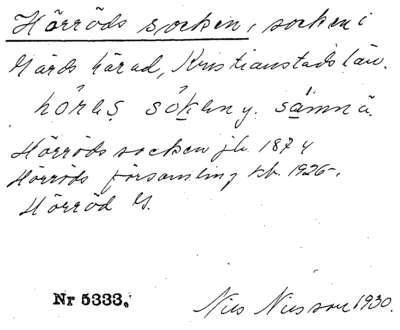 Hörröds socken, socken i
Gärds härad, Kristianstads län.
Hörröds socken jb. 1874
Hörröds församling kb. 1926-.
Hörröd G.
Nr 5333.
Nils Nilsson 1930.